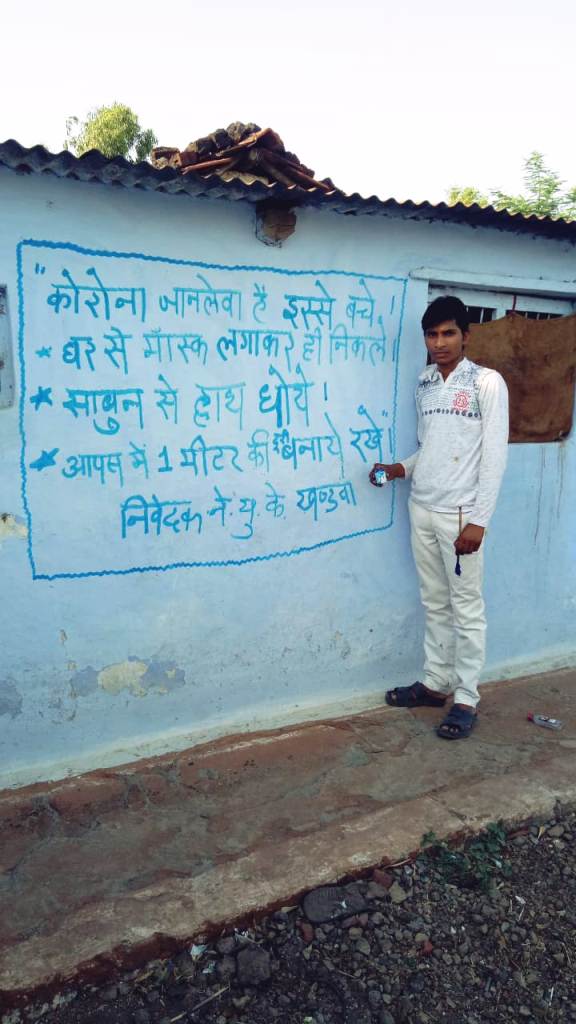 "कोरोना जानलेवा है इससे बचे !
* घर से मॉस्क लगाकर ही निकले।
* साबुन से हाथ धोये !
* आपस में 1 मीटर की दूरी बनाये रखे"।
निवेदक ने. यु. के. खण्डवा